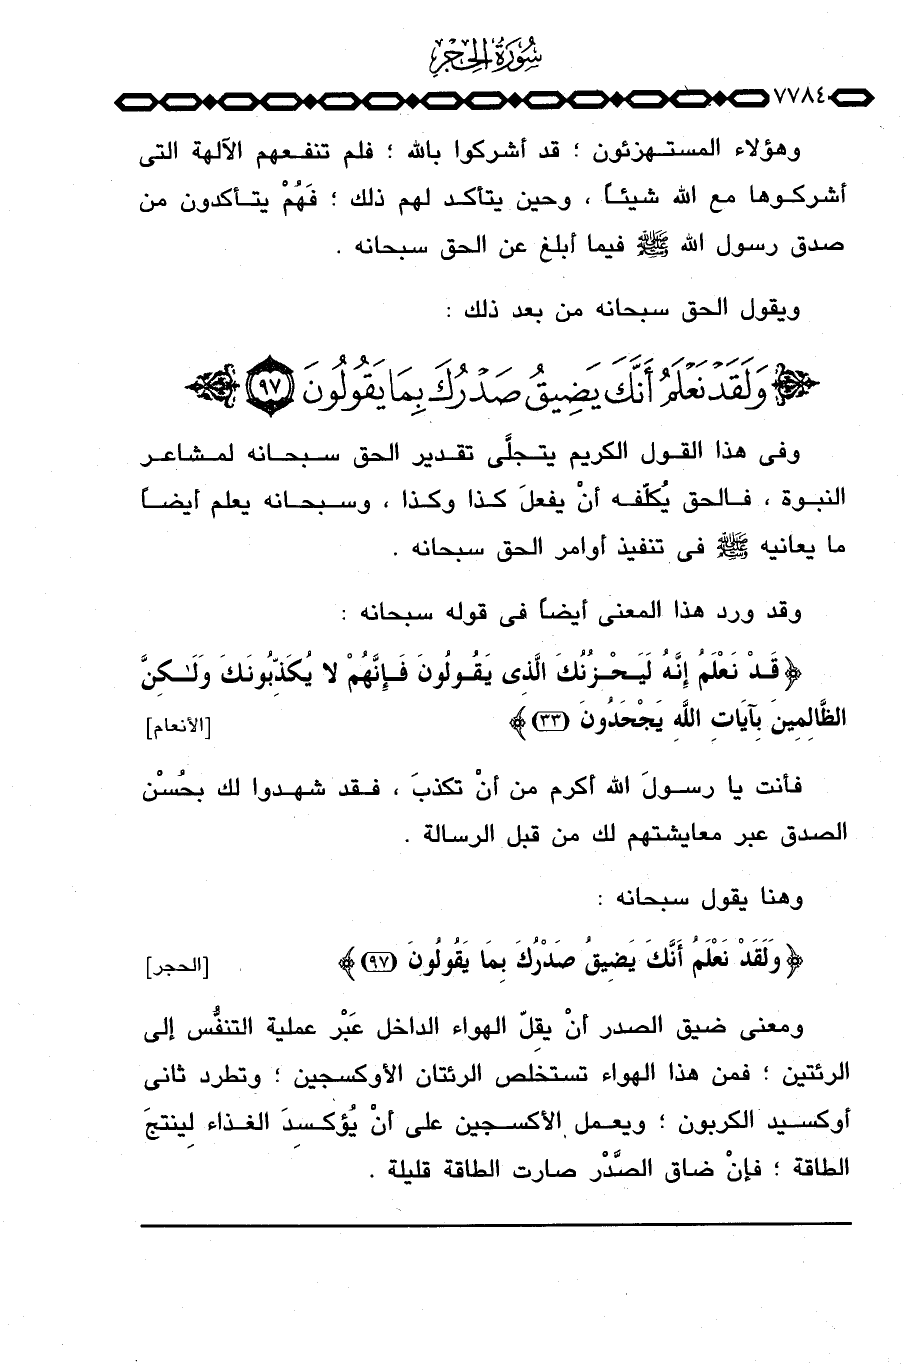 سُورَةُ الحِجْرِ
٧٧٨٤
وهؤلاء المستهزئون ؛ قد أشركوا بالله ؛ فلم تنفعهم الآلهة التى
أشركوها مع الله شيئاً ، وحين يتأكد لهم ذلك ؛ فَهُمْ يتأكدون من
صدق رسول الله ﷺ فيما أبلغ عن الحق سبحانه .
ويقول الحق سبحانه من بعد ذلك :
وَلَقَدْ نَعْلَمُ أَنَّكَ يَضِيقُ صَدْرُكَ بِمَا يَقُولُونَ ٩٧
وفى هذا القول الكريم يتجلَّى تقدير الحق سبحانه لمشاعر
النبوة ، فالحق يُكلّفه أنْ يفعلَ كذا وكذا ، وسبحانه يعلم أيضاً
ما يعانيه ﷺ فى تنفيذ أوامر الحق سبحانه .
وقد ورد هذا المعنى أيضاً فى قوله سبحانه :
﴿ قَدْ نَعْلَمُ إِنَّهُ لَيَحْزُنُكَ الَّذِى يَقُولُونَ فَإِنَّهُمْ لا يُكَذِّبُونَكَ وَلَـٰكِنَّ
الظَّالِمِينَ بِآيَاتِ اللَّهِ يَجْحَدُونَ (٣٣) ﴾ [الأنعام]
فأنت يا رسولَ الله أكرم من أنْ تكذبَ ، فقد شهدوا لك بحُسْن
الصدق عبر معايشتهم لك من قبل الرسالة .
وهنا يقول سبحانه :
﴿ وَلَقَدْ نَعْلَمُ أَنَّكَ يَضِيقُ صَدْرُكَ بِمَا يَقُولُونَ (٩٧) ﴾ [الحجر]
ومعنى ضيق الصدر أنْ يقِلّ الهواء الداخل عَبْر عملية التنفُّس إلى
الرئتين ؛ فمن هذا الهواء تستخلص الرئتان الأوكسجين ؛ وتطرد ثانى
أوكسيد الكربون ؛ ويعمل الأكسجين على أنْ يُؤكسِدَ الغذاء لِينتجَ
الطاقة ؛ فإنْ ضاق الصَّدْر صارت الطاقة قليلة .